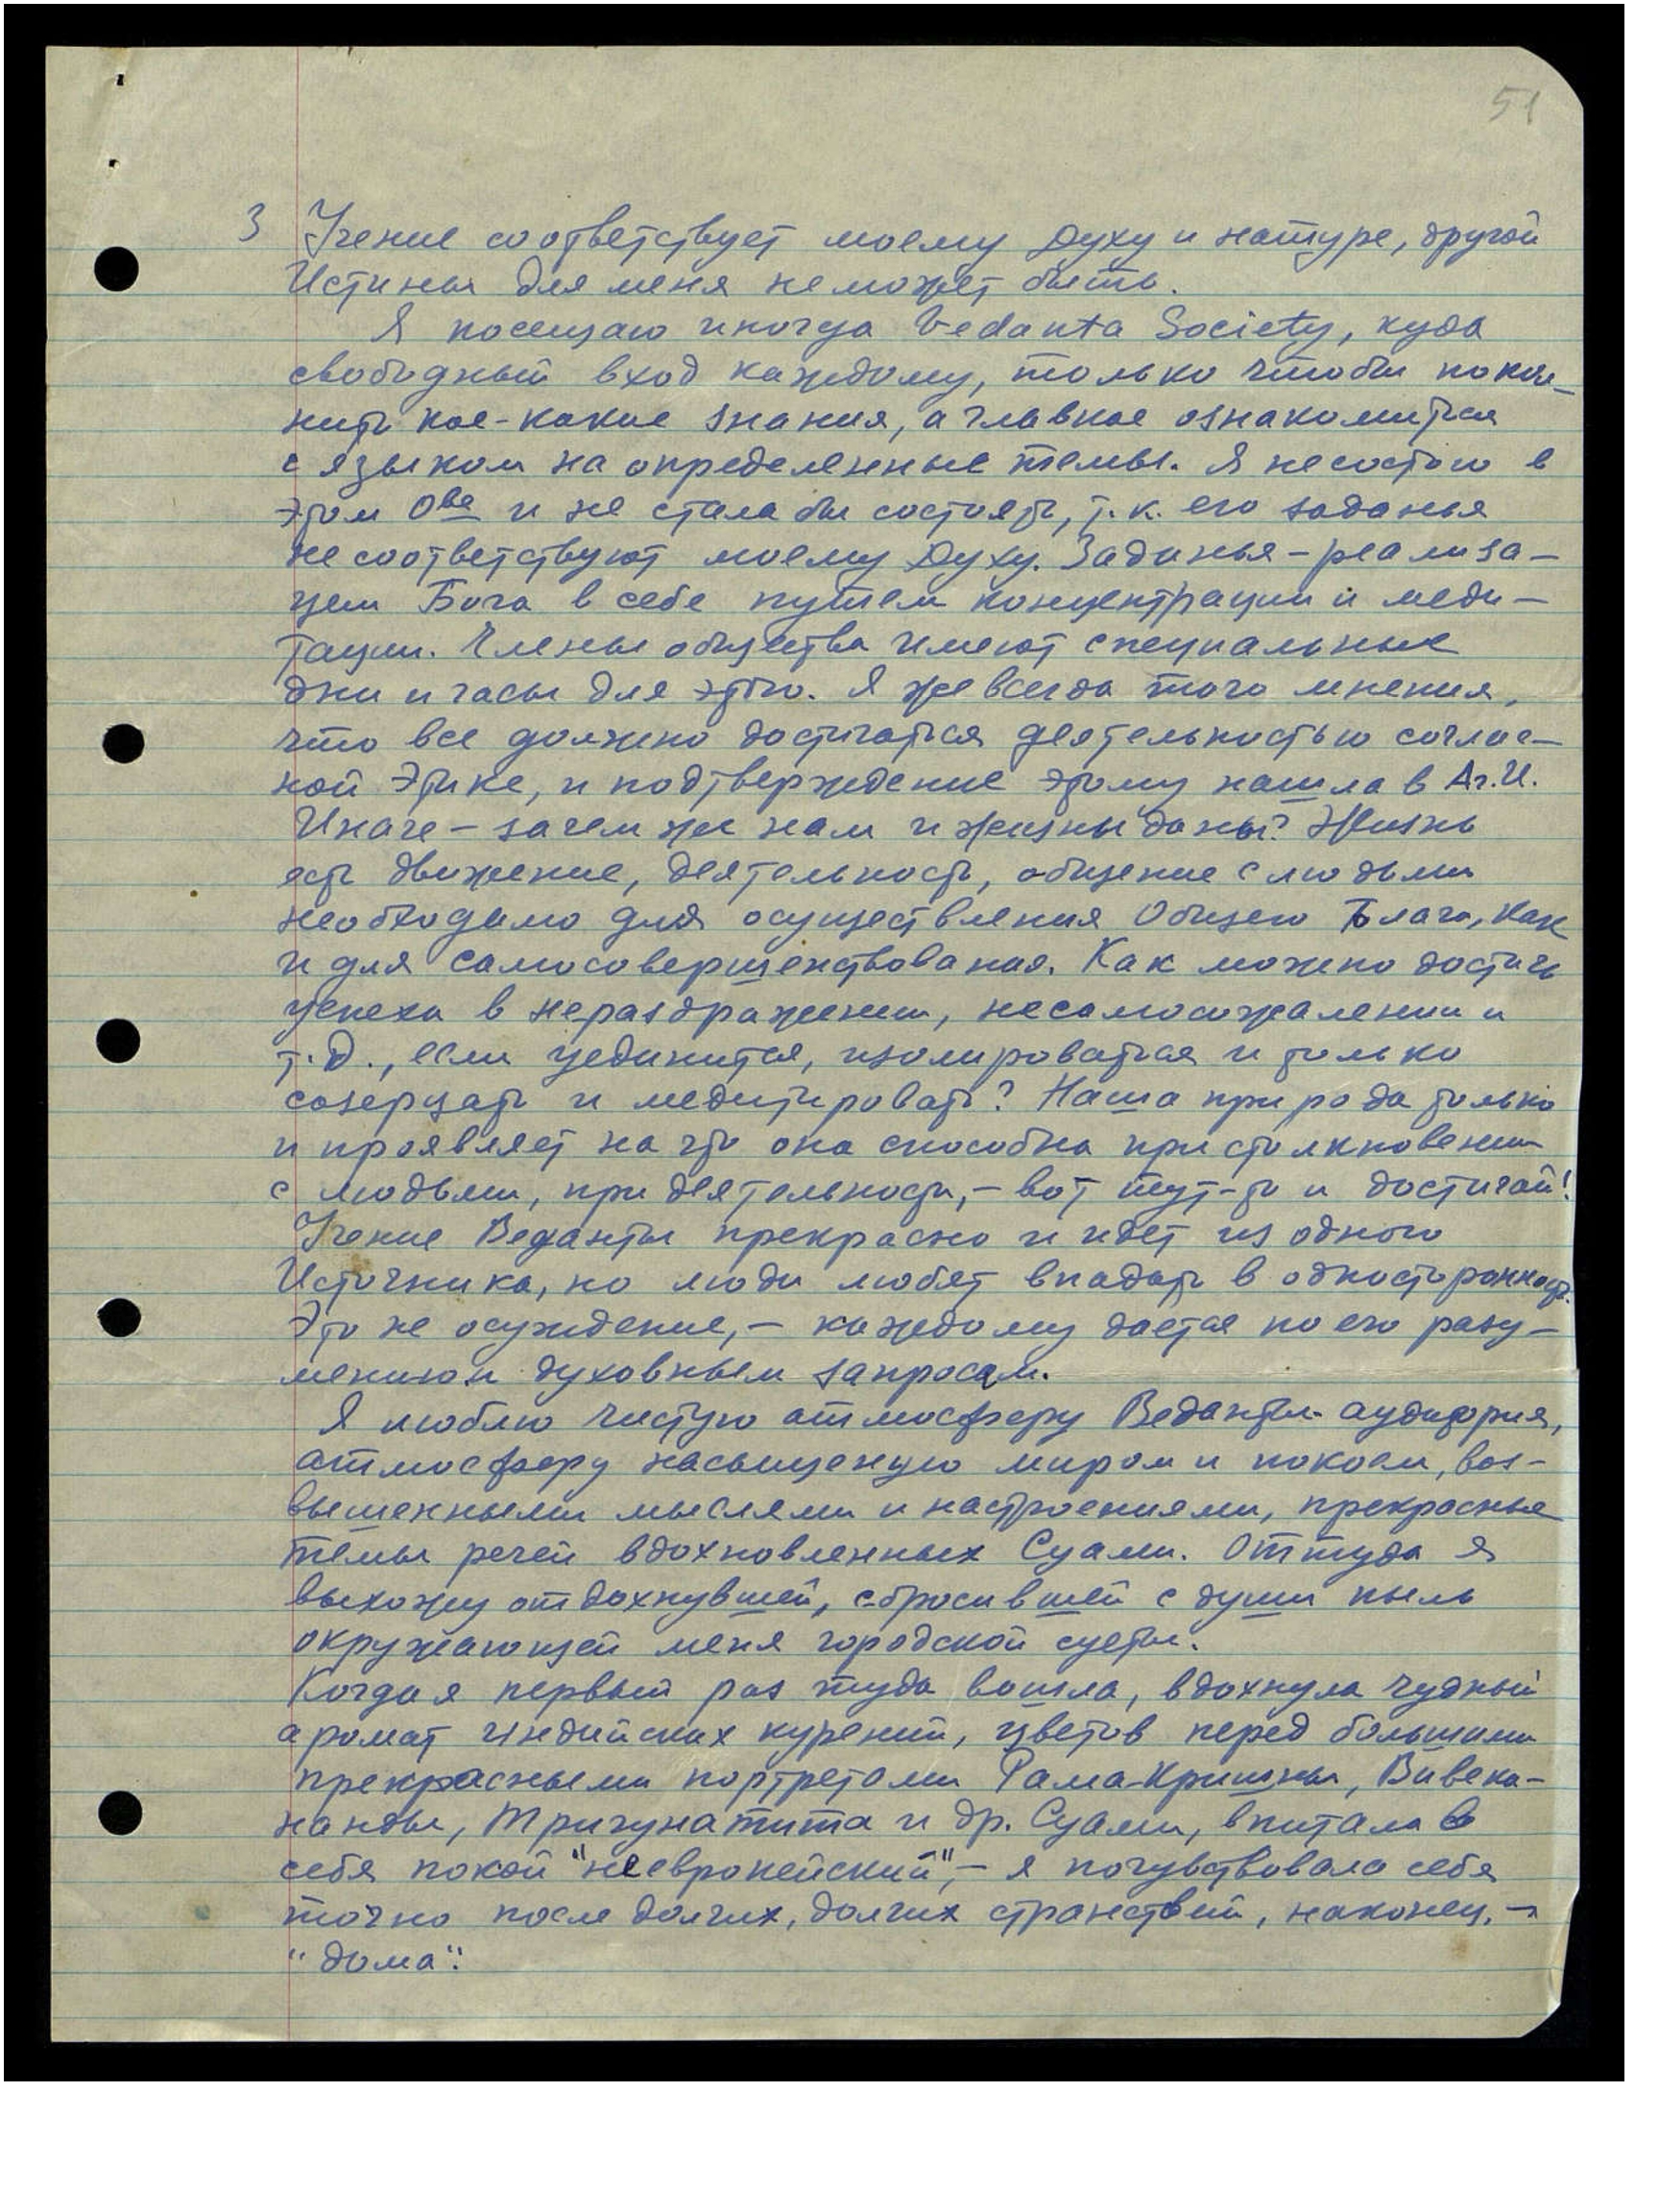 51
3 Учение соответствует моему Духу и натуре, другой
Истины для меня не может быть.
Я посещаю иногда Vedanta Society, куда
свободный вход каждому, только чтобы попол-
нить кое-какие знания, а главное ознакомиться
с языком на определенные темы. Я не состою в
этом О-ве и не стала бы состоять, т.к. его заданья
не соответствуют моему Духу. Заданья - реализа-
ция Бога в себе путем концентрации и меди-
тации. Члены общества имеют специальные
дни и часы для этого. Я же всегда того мнения,
что все должно достигаться деятельностью соглас-
ной Этике, и подтверждение этому нашла в Аг.И.
Иначе - зачем же нам и жизни даны? Жизнь
есть движение, деятельность, общение с людьми
необходимо для осуществления Общего Блага, как
и для самосовершенствования. Как можно достичь
успеха в нераздражении, несамосожалении и
т.д., если уединится, изолироваться и только
созерцать и медитировать? Наша природа только
и проявляет на что она способна при столкновении
с людьми, при деятельности, - вот тут-то и достигай!
Учение Веданты прекрасно и идет из одного
Источника, но люди любят впадать в односторонность.
Это не осуждение, - каждому дается по его разу-
мению и духовным запросам.
Я люблю чистую атмосферу Веданты аудитория,
атмосферу насыщеную миром и покоем, воз-
вышенными мыслями и настроениями, прекрасные
темы речей вдохновленных Суами. Оттуда я
выхожу отдохнувшей, сбросившей с души пыль
окружающей меня городской суеты.
Когда я первый раз туда вошла, вдохнула чудный
аромат индийских курений, цветов перед большими
прекрасными портретами Рама-Кришны, Вивека-
нанды, Тригунатита и др. Суами, впитала в
себя покой "неевропейский", - я почувствовала себя
точно после долгих, долгих странствий, наконец, -
"дома".